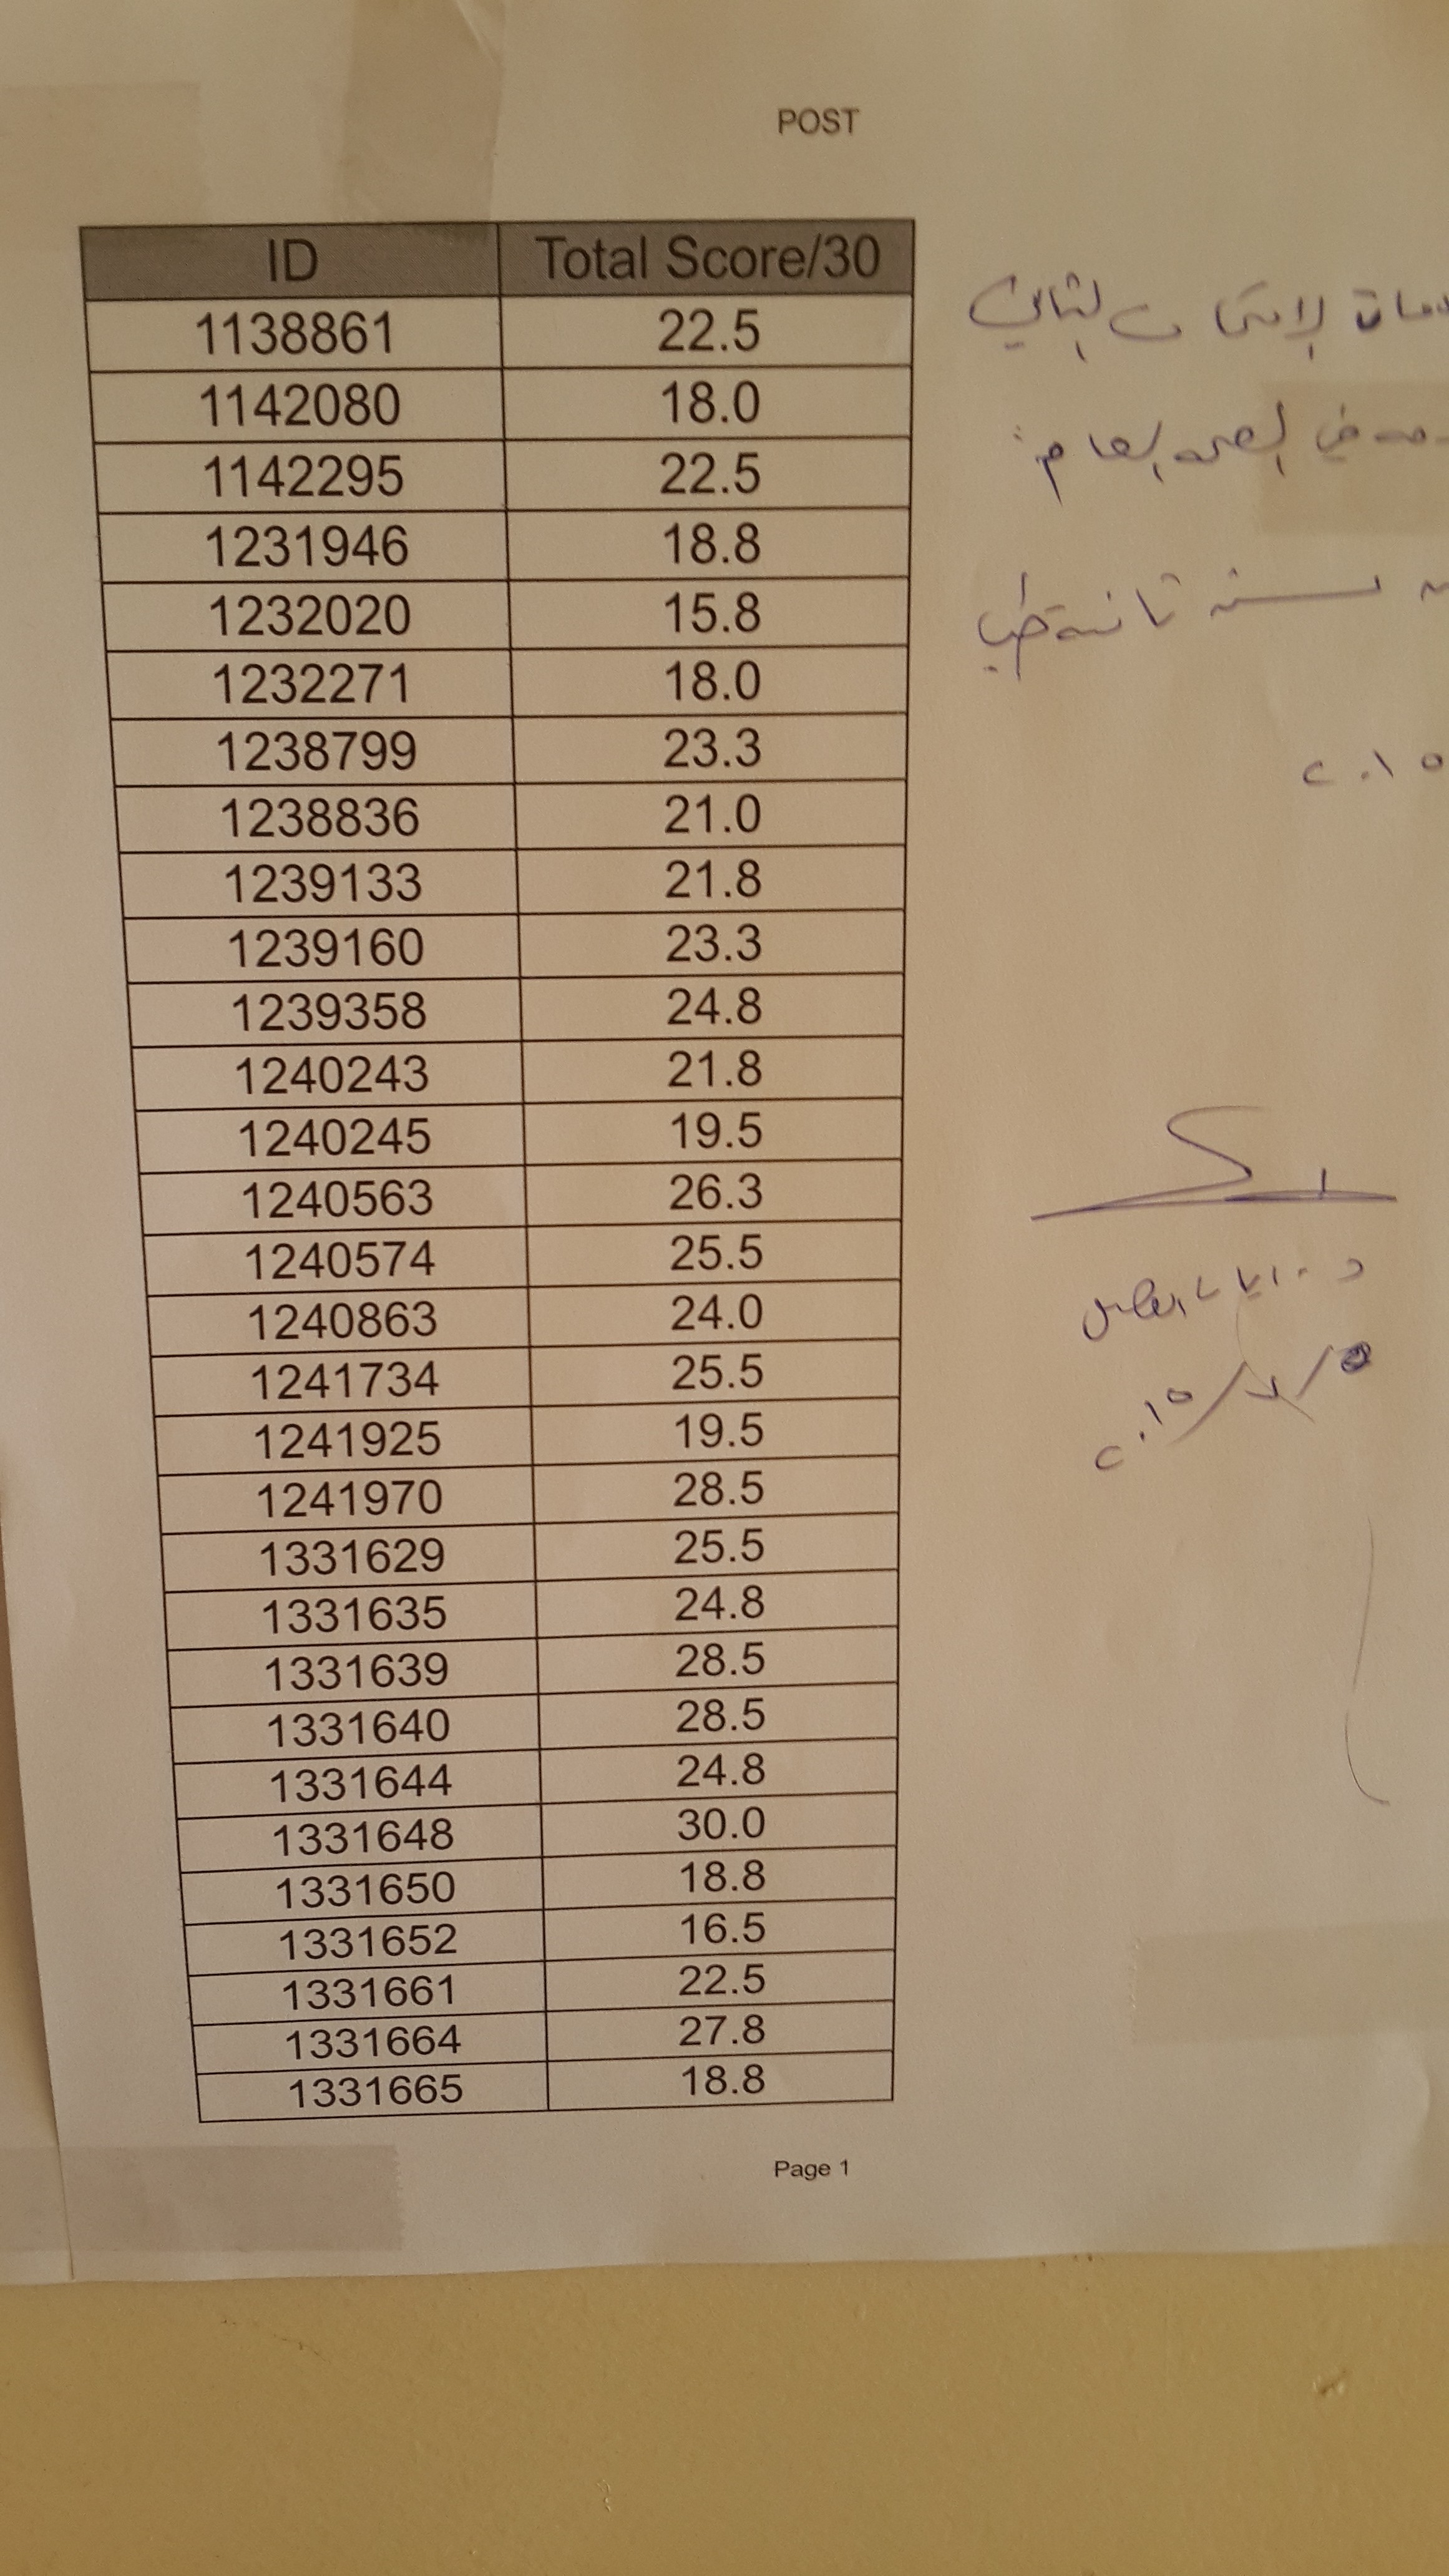 POST
ID Total Score/30
1138861 22.5
1142080 18.0
1142295 22.5
1231946 18.8
1232020 15.8
1232271 18.0
1238799 23.3
1238836 21.0
1239133 21.8
1239160 23.3
1239358 24.8
1240243 21.8
1240245 19.5
1240563 26.3
1240574 25.5
1240863 24.0
1241734 25.5
1241925 19.5
1241970 28.5
1331629 25.5
1331635 24.8
1331639 28.5
1331640 28.5
1331644 24.8
1331648 30.0
1331650 18.8
1331652 16.5
1331661 22.5
1331664 27.8
1331665 18.8
الامتحان الثاني
في الصحة العامة
سنة ثانية طب
٢٠١٥
د.
٢٠١٥
Page 1